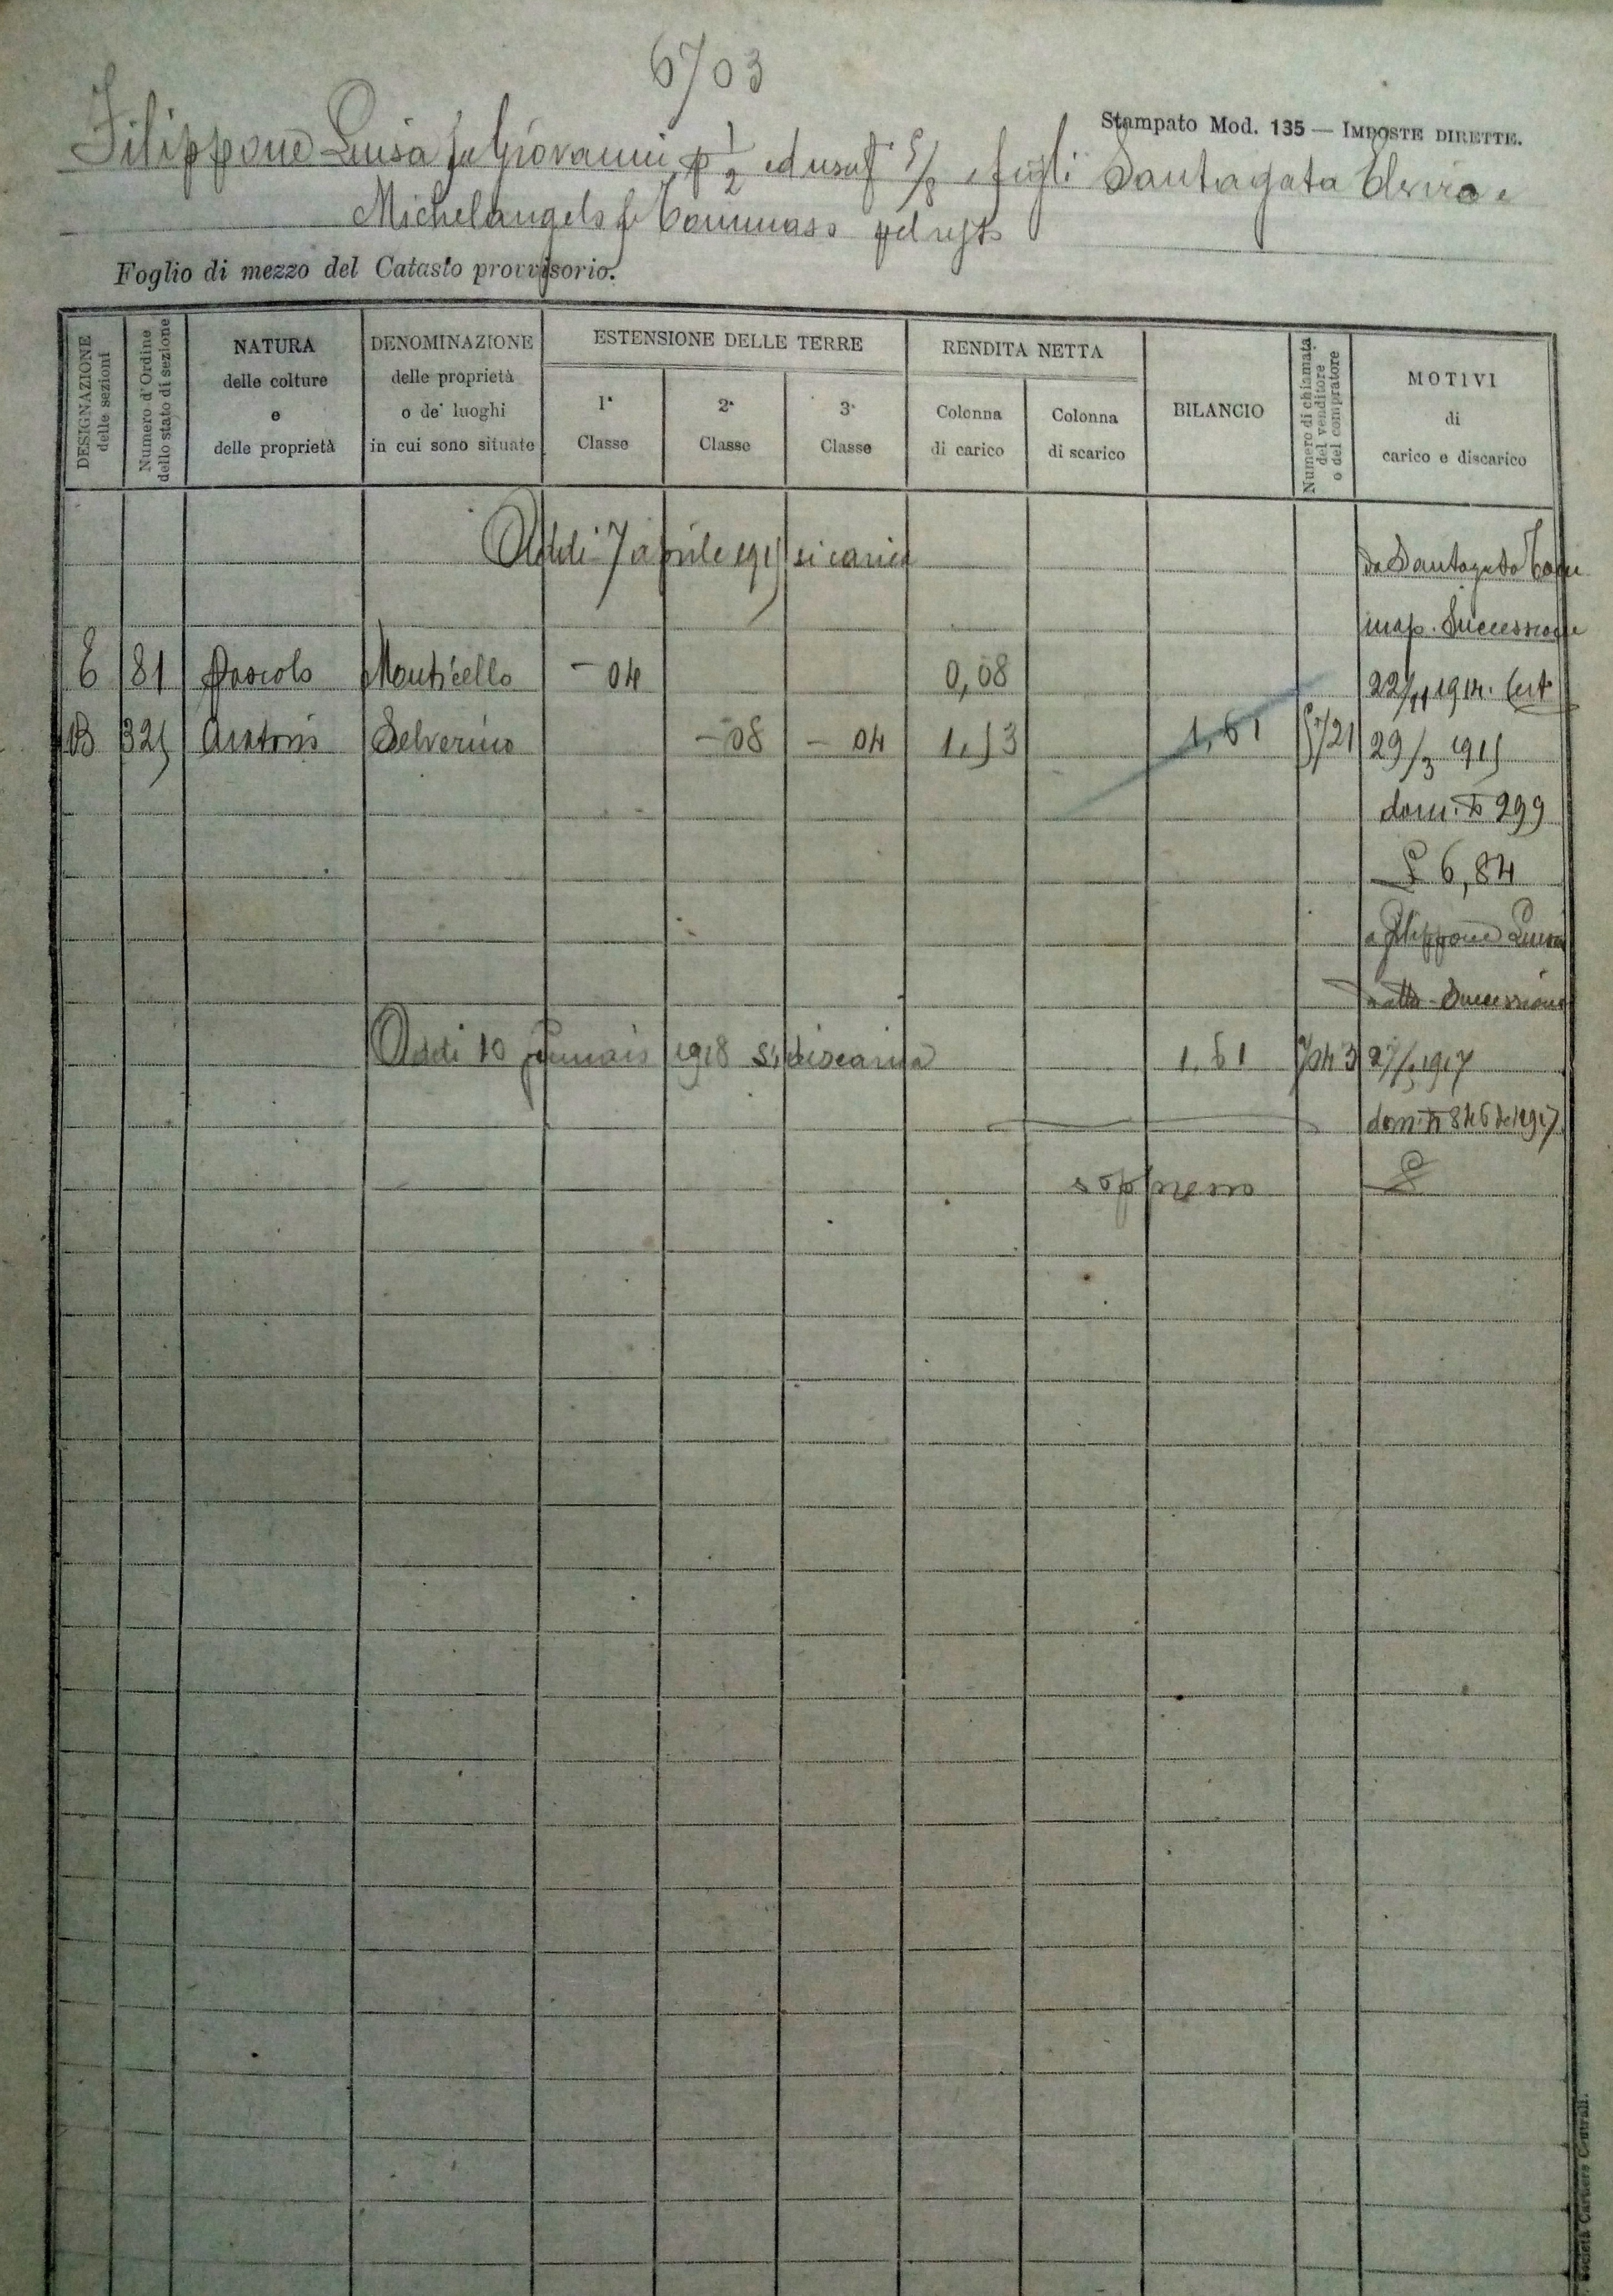 6703
Stampato Mod. 135 — IMPOSTE DIRETTE.
Filippone Luisa fu Giovanni p 1/2 ed usuf 5/8 e figli Santagata Elvira e
Michelangelo fu Tommaso pel resto
Foglio di mezzo del Catasto provvisorio.
DESIGNAZIONE delle sezioni
Numero d'Ordine dello stato di sezione
NATURA delle colture e delle proprietà
DENOMINAZIONE delle proprietà o de' luoghi in cui sono situate
ESTENSIONE DELLE TERRE
1ª Classe
2ª Classe
3ª Classe
RENDITA NETTA
Colonna di carico
Colonna di scarico
BILANCIO
Numero di chiamata del venditore o del compratore
MOTIVI di carico e discarico
Addi 7 aprile 1915 si carica
da Santagata Tom
Successione
E 81 Pascolo Monticello - 04 0,08 22/11 1914. Cert
B 325 Aratorio Selverino - 08 - 04 1,53 1,61 5721 29/3 1915
dom. N 299
£ 6,84
a Filippone Luisa
Successione
Addi 10 Gennaio 1918 si discarica 1.61 7043 1917
dom. N 846 del 1917
soppresso